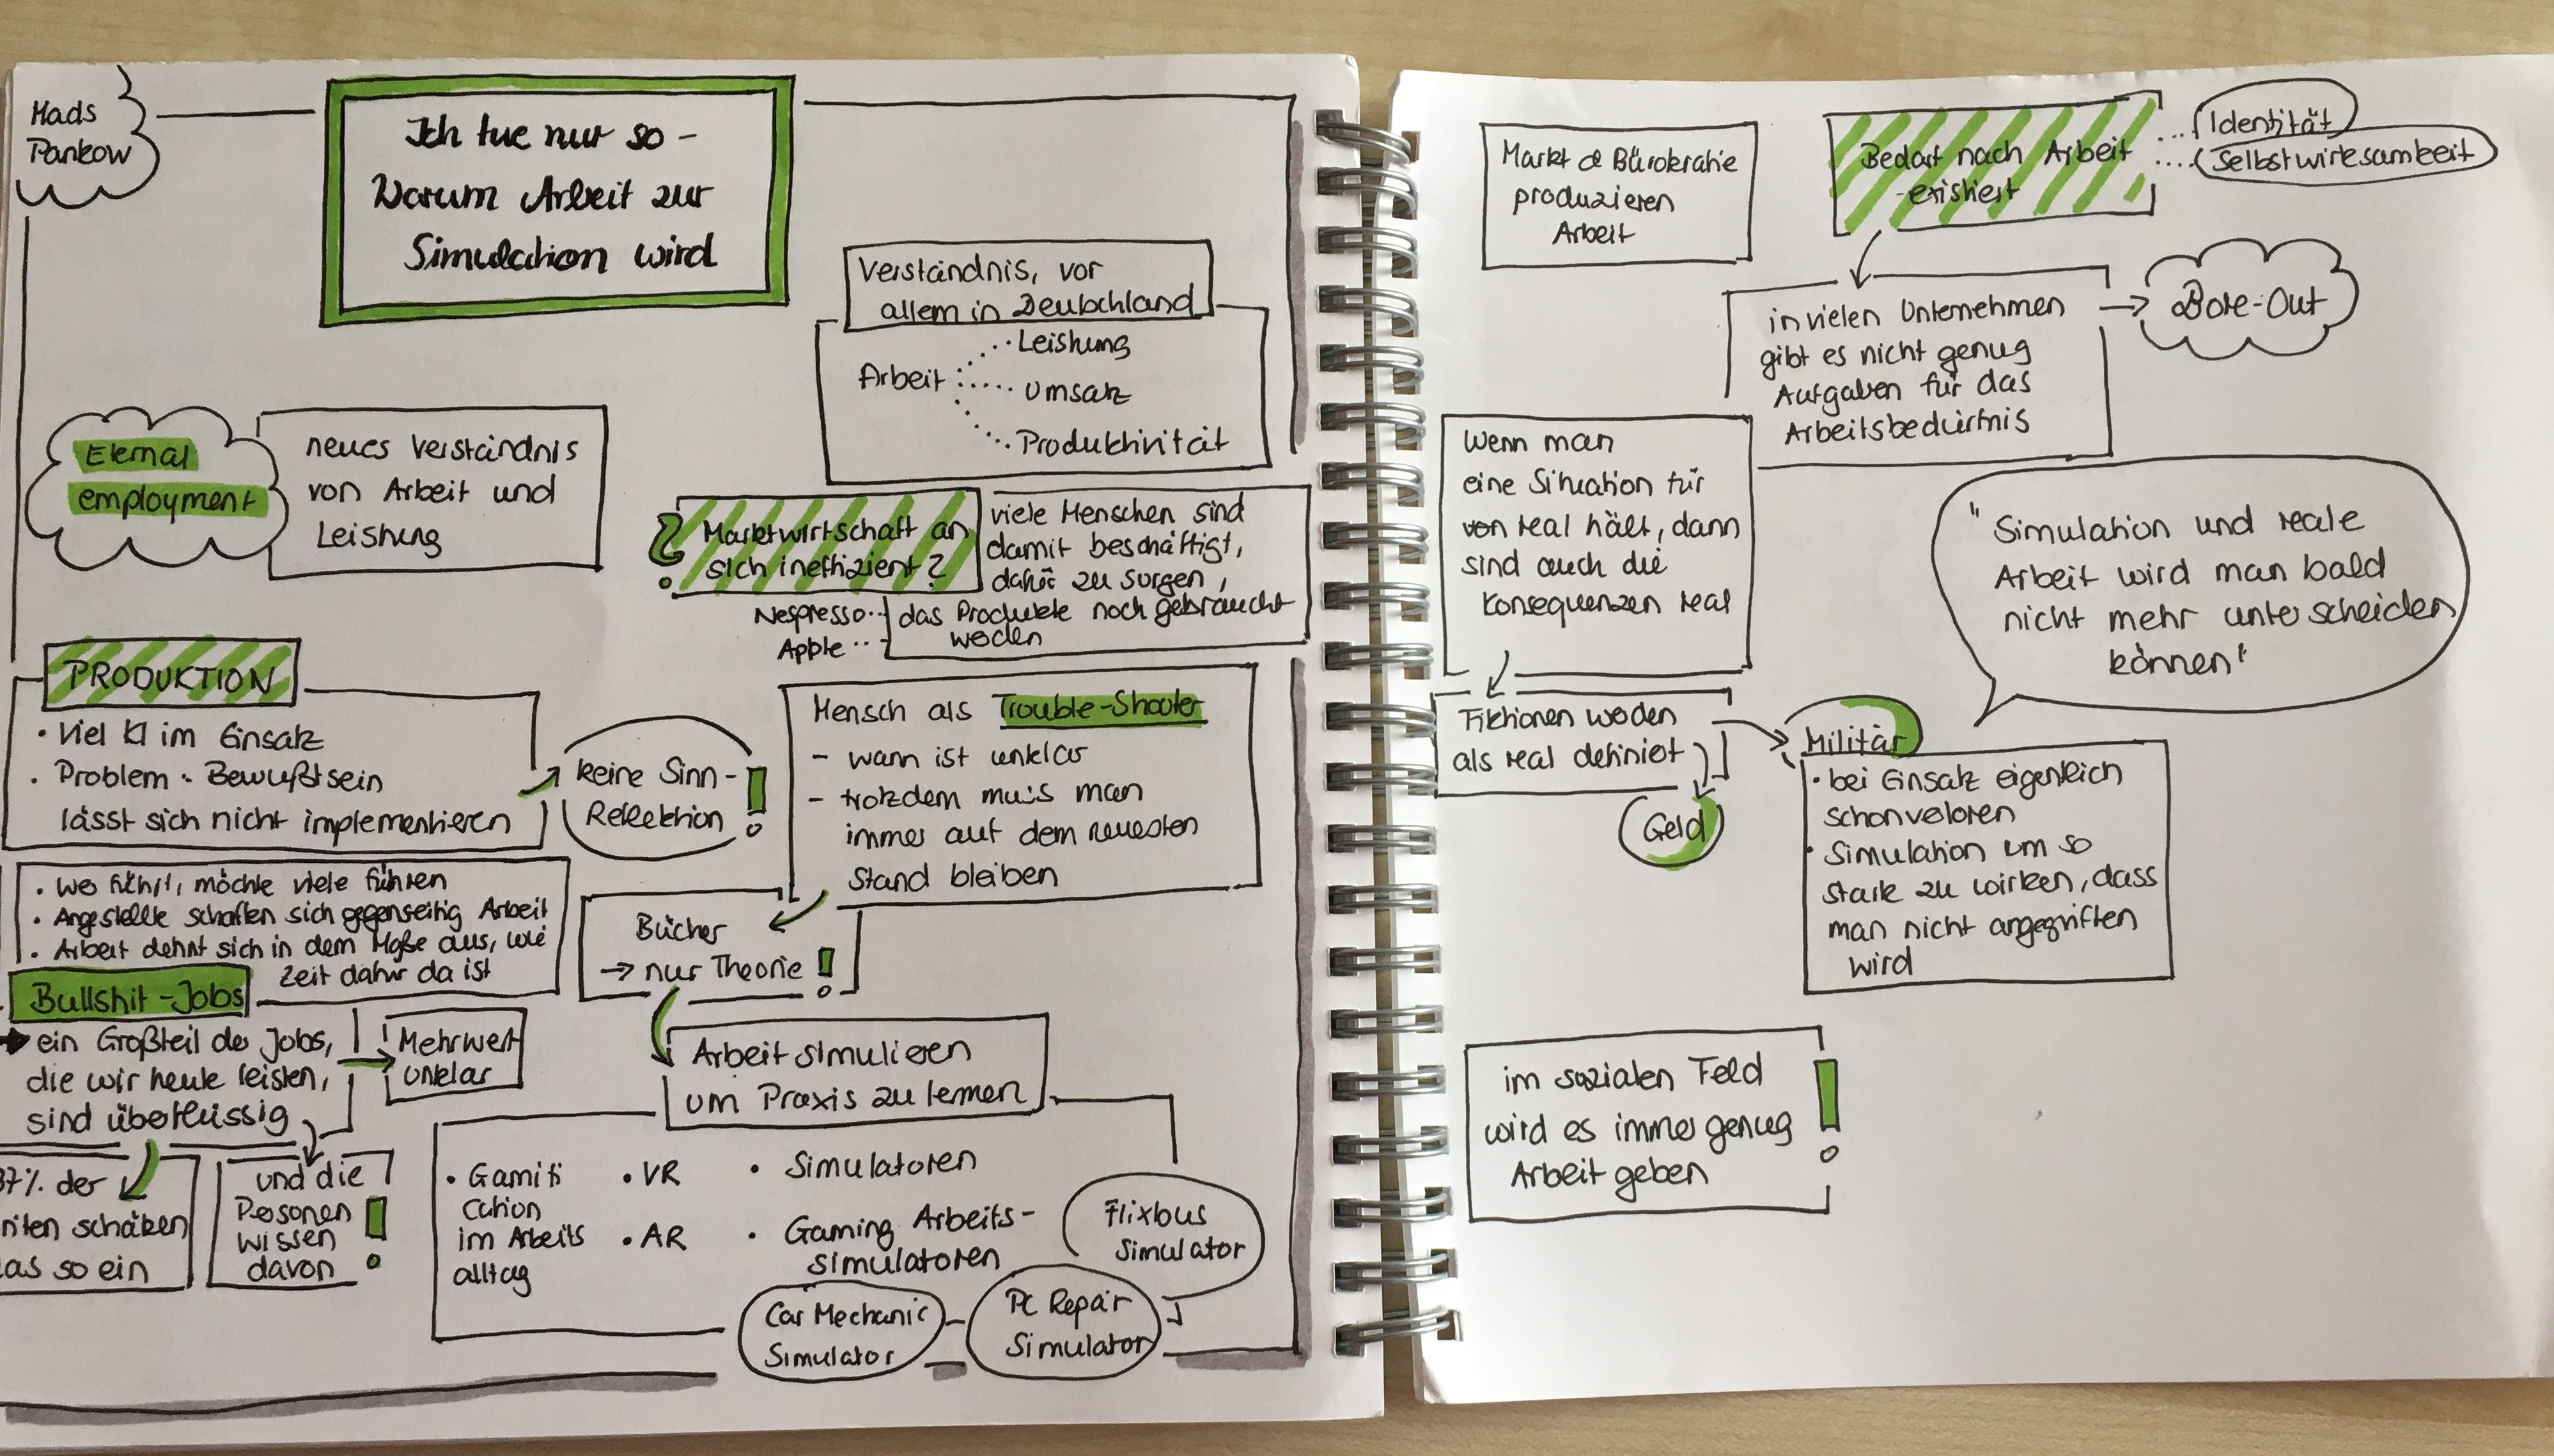 Mads
Pankow
Ich tue nur so –
Warum Arbeit zur
Simulation wird
Verständnis, vor
allem in Deutschland
Arbeit
Leistung
Umsatz
Produktivität
Eternal
employment
neues Verständnis
von Arbeit und
Leistung
? Marktwirtschaft an
sich ineffizient?
viele Menschen sind
damit beschäftigt,
dafür zu sorgen,
das Produkte noch gebraucht
werden
Nespresso
Apple
PRODUKTION
• Viel KI im Einsatz
• Problem: Bewußtsein
lässt sich nicht implementieren
keine Sinn-
Reflektion !
Mensch als Trouble-Shooter
– wann ist unklar
– trotzdem muss man
immer auf dem neuesten
Stand bleiben
• Wer führt, möchte viele führen
• Angestellte schaffen sich gegenseitig Arbeit
• Arbeit dehnt sich in dem Maße aus, wie
Zeit dafür da ist
Bullshit-Jobs
→ ein Großteil der Jobs,
die wir heute leisten,
sind überflüssig
Mehrwert
unklar
37% der
schätzen
so ein
und die
Personen
wissen
davon !
Bücher
→ nur Theorie !
Arbeit simulieren
um Praxis zu lernen
• Gamifi
cation
im Arbeits
alltag
• VR
• AR
• Simulatoren
• Gaming Arbeits-
simulatoren
Flixbus
Simulator
Car Mechanic
Simulator
PC Repair
Simulator
Markt & Bürokratie
produzieren
Arbeit
Bedarf nach Arbeit
existiert
Identität
Selbstwirksamkeit
in vielen Unternehmen
gibt es nicht genug
Aufgaben für das
Arbeitsbedürfnis
→ Bore-Out
Wenn man
eine Situation für
von real hält, dann
sind auch die
Konsequenzen real
"Simulation und reale
Arbeit wird man bald
nicht mehr unterscheiden
können"
Fiktionen werden
als real definiert
Geld
Militär
• bei Einsatz eigentlich
schon verloren
• Simulation um so
stark zu wirken, dass
man nicht angegriffen
wird
im sozialen Feld
wird es immer genug
Arbeit geben !